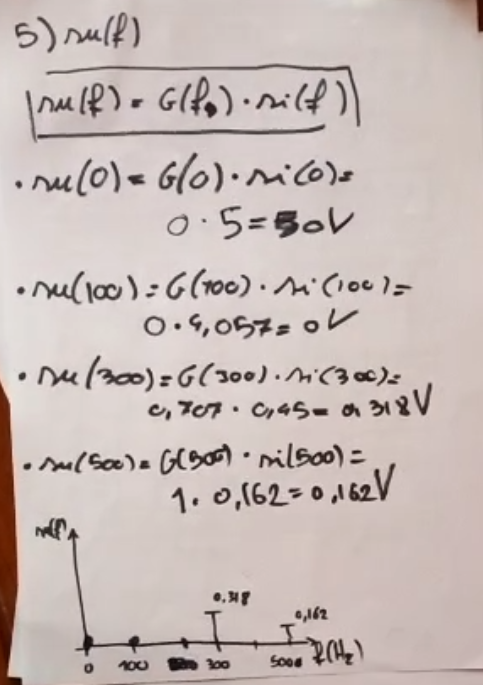 5) su(f)
su(f) = G(f) · si(f)
· su(0) = G(0) · si(0) =
0 · 5 = 0V
· su(100) = G(100) · si(100) =
0 · 4,057 = 0V
· su(300) = G(300) · si(300) =
0,707 · 0,45 = 0,318V
· su(500) = G(500) · si(500) =
1 · 0,162 = 0,162V
0,318
0,162
0 100 300 500 f(Hz)